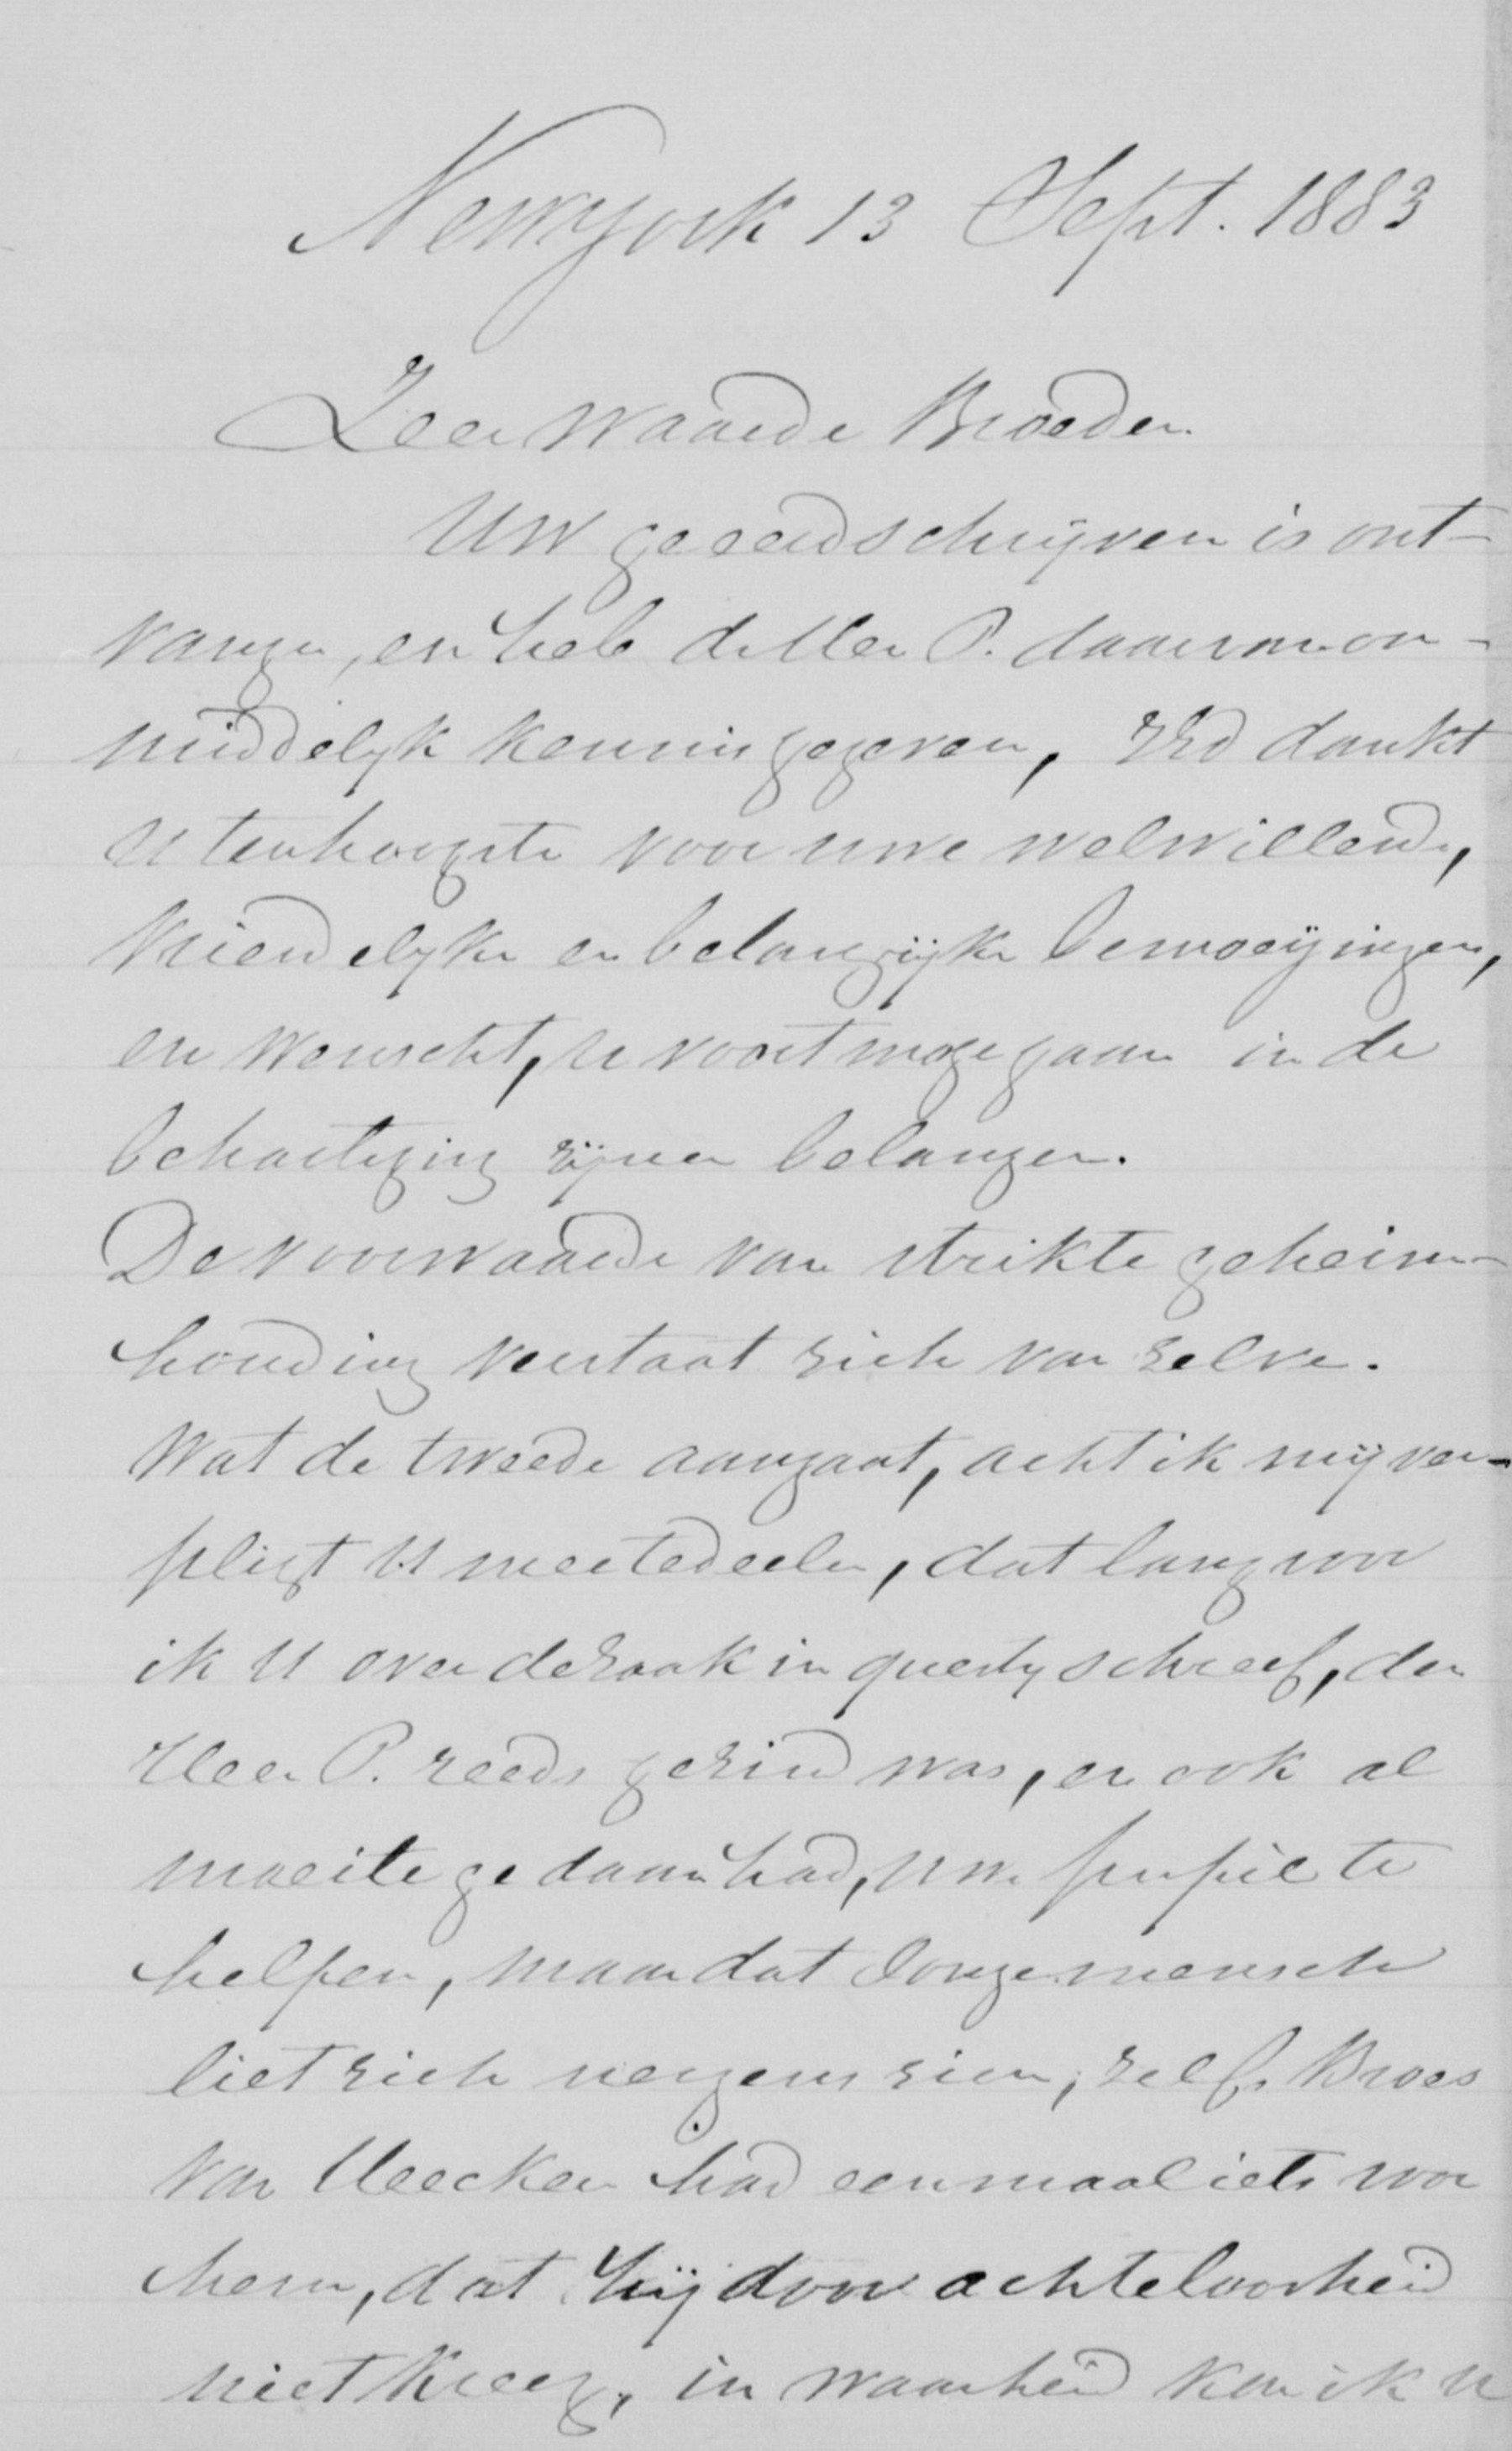 Newyork 13 Sept. 1883
Zeer Waarde Broeder.
Uw geeerd schrijven is ont-
vangen, en heb de Heer P. daarvan on-
middelyk kennis gegeven, ZEd dankt
U ten hoogste voor uwe welwillende,
vriendelyke en belangrijke bemoeijingen,
en wenscht, U voort moge gaan in de
behartiging zijner belangen.
De voorwaarde van strikte geheim-
houding verstaat zich van zelve.
Wat de tweede aangaat, acht ik mij ver-
pligt U meetedeelen, dat lang voor
ik U over de zaak in questy schreef, de
Heer P. reeds gezind was, en ook al
moeite gedaan had, uw pupil te
helpen, maar dat Jongemensch
liet zich nergens zien, zelfs Broer
van Heecken had eenmaal iets voor
hem, dat hij door achteloosheid
niet kreeg, in waarheid kan ik U